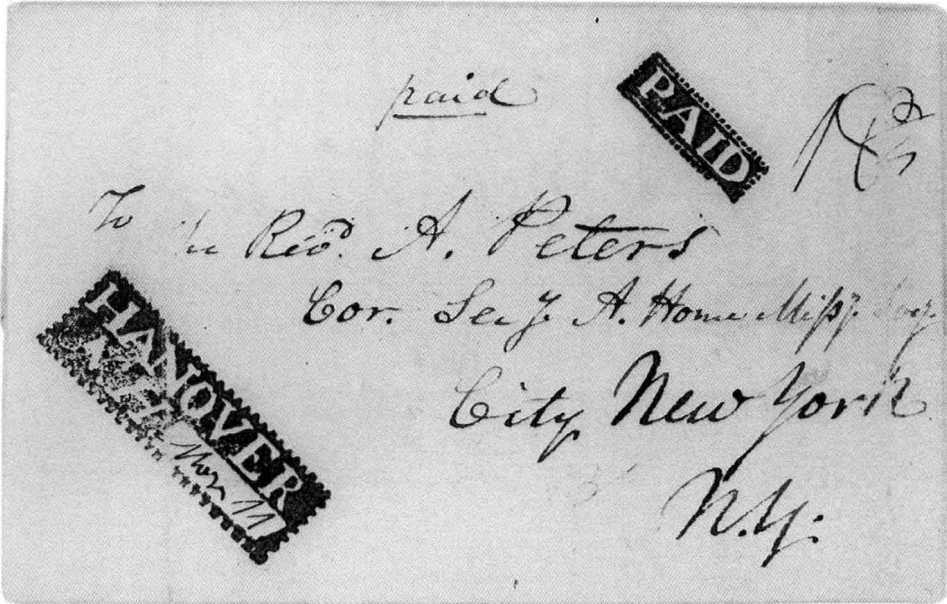 paid
PAID
To the Revd. A. Peters
Cor. Secy. A. Home Missy. Socy.
City New York
N.Y.
HANOVER
Nov 11